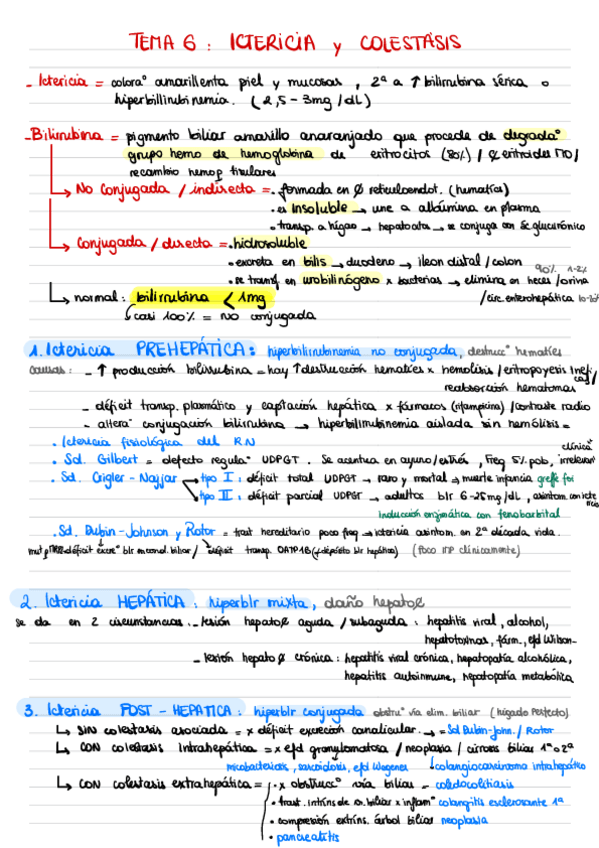 TEMA 6 : ICTERICIA y COLESTASIS
- Ictericia = coloraº amarillenta piel y mucosas, 2ª a ↑ bilirrubina sérica o
hiperbillirubinemia. (2,5 - 3mg/dL)
- Bilirrubina = pigmento biliar amarillo anaranjado que procede de degradaº
grupo hemo de hemoglobina de eritrocitos (80%) /
recambio hemop tisulares
→ No Conjugada / indirecta = • formada en reticuloendot. (hematíes)
• es insoluble → une a albúmina en plasma
• transp. a hígao → hepatocito → se conjuga con ác glucurónico
→ Conjugada / directa = • hidrosoluble
• excreta en bilis → duodeno → ileon distal / colon
90% 1-2%
• se transf. en urobilinógeno x bacterias → elimina en heces / orina
/ circ. enterohepática 10-20%
→ normal : bilirrubina < 1mg
casi 100% = no conjugada
1. Ictericia PREHEPÁTICA : hiperbilirrubinemia no conjugada, destrucº hematíes
causas : - ↑ producción bilirrubina = hay ↑ destrucción hematíes x hemolisis / eritropoyesis inefi
caz /
reabsorción hematomas
- déficit transp. plasmático y captación hepática x fármacos (rifampicina) / contraste radio
- alteraº conjugación bilirrubina → hiperbilirrubinemia aislada sin hemólisis =
• Ictericia fisiológica del RN
clínicaº
• Sd. Gilbert = defecto regulaº UDPGT. Se acentua en ayuno / estrés, Freq 5% pob, irrelevant
• Sd. Crigler - Najjar → tipo I : déficit total UDPGT → raro y mortal → muerte infancia
→ tipo II : déficit parcial UDPGT → adultos blr 6-25mg/dL, asintom. con icte
ricia
inducción enzimática con fenobarbital
• Sd. Dubin - Johnson y Rotor = trast hereditario poco freq → ictericia asintom. en 2ª década vida.
déficit excreº blr en canal. biliar / déficit transp. OATP1B (↓ depósito blr hepático) (poco imp clínicamente)
2. Ictericia HEPÁTICA : hiperblr mixta, daño
se da en 2 circunstancias : - lesión aguda / subaguda : hepatitis viral, alcohol,
hepatotoxinas, fárm., efd Wilson -
- lesión crónica : hepatitis viral crónica, hepatopatía alcohólica,
hepatitis autoinmune, hepatopatía metabólica
3. Ictericia POST - HEPATICA : hiperblr conjugada obstruº vía elim. biliar (hígado Perfecto)
↳ SIN colestasis asociada = x déficit excreción canalicular. → = Sd Dubin-John. / Rotor
↳ CON colestasis intrahepática = x efd granulomatosa / neoplasia / cirrosis biliar 1ª o 2ª
micobacteriosis, sarcoidosis, efd Wegener ↓ colangiocarcinoma intrahepático
↳ CON colestasis extrahepática = • x obstruccº vía biliar - coledocolitiasis
• trast. intríns de biliar x inflamº colangitis esclerosante 1ª
• compresión extríns. árbol biliar neoplasia
• pancreatitis